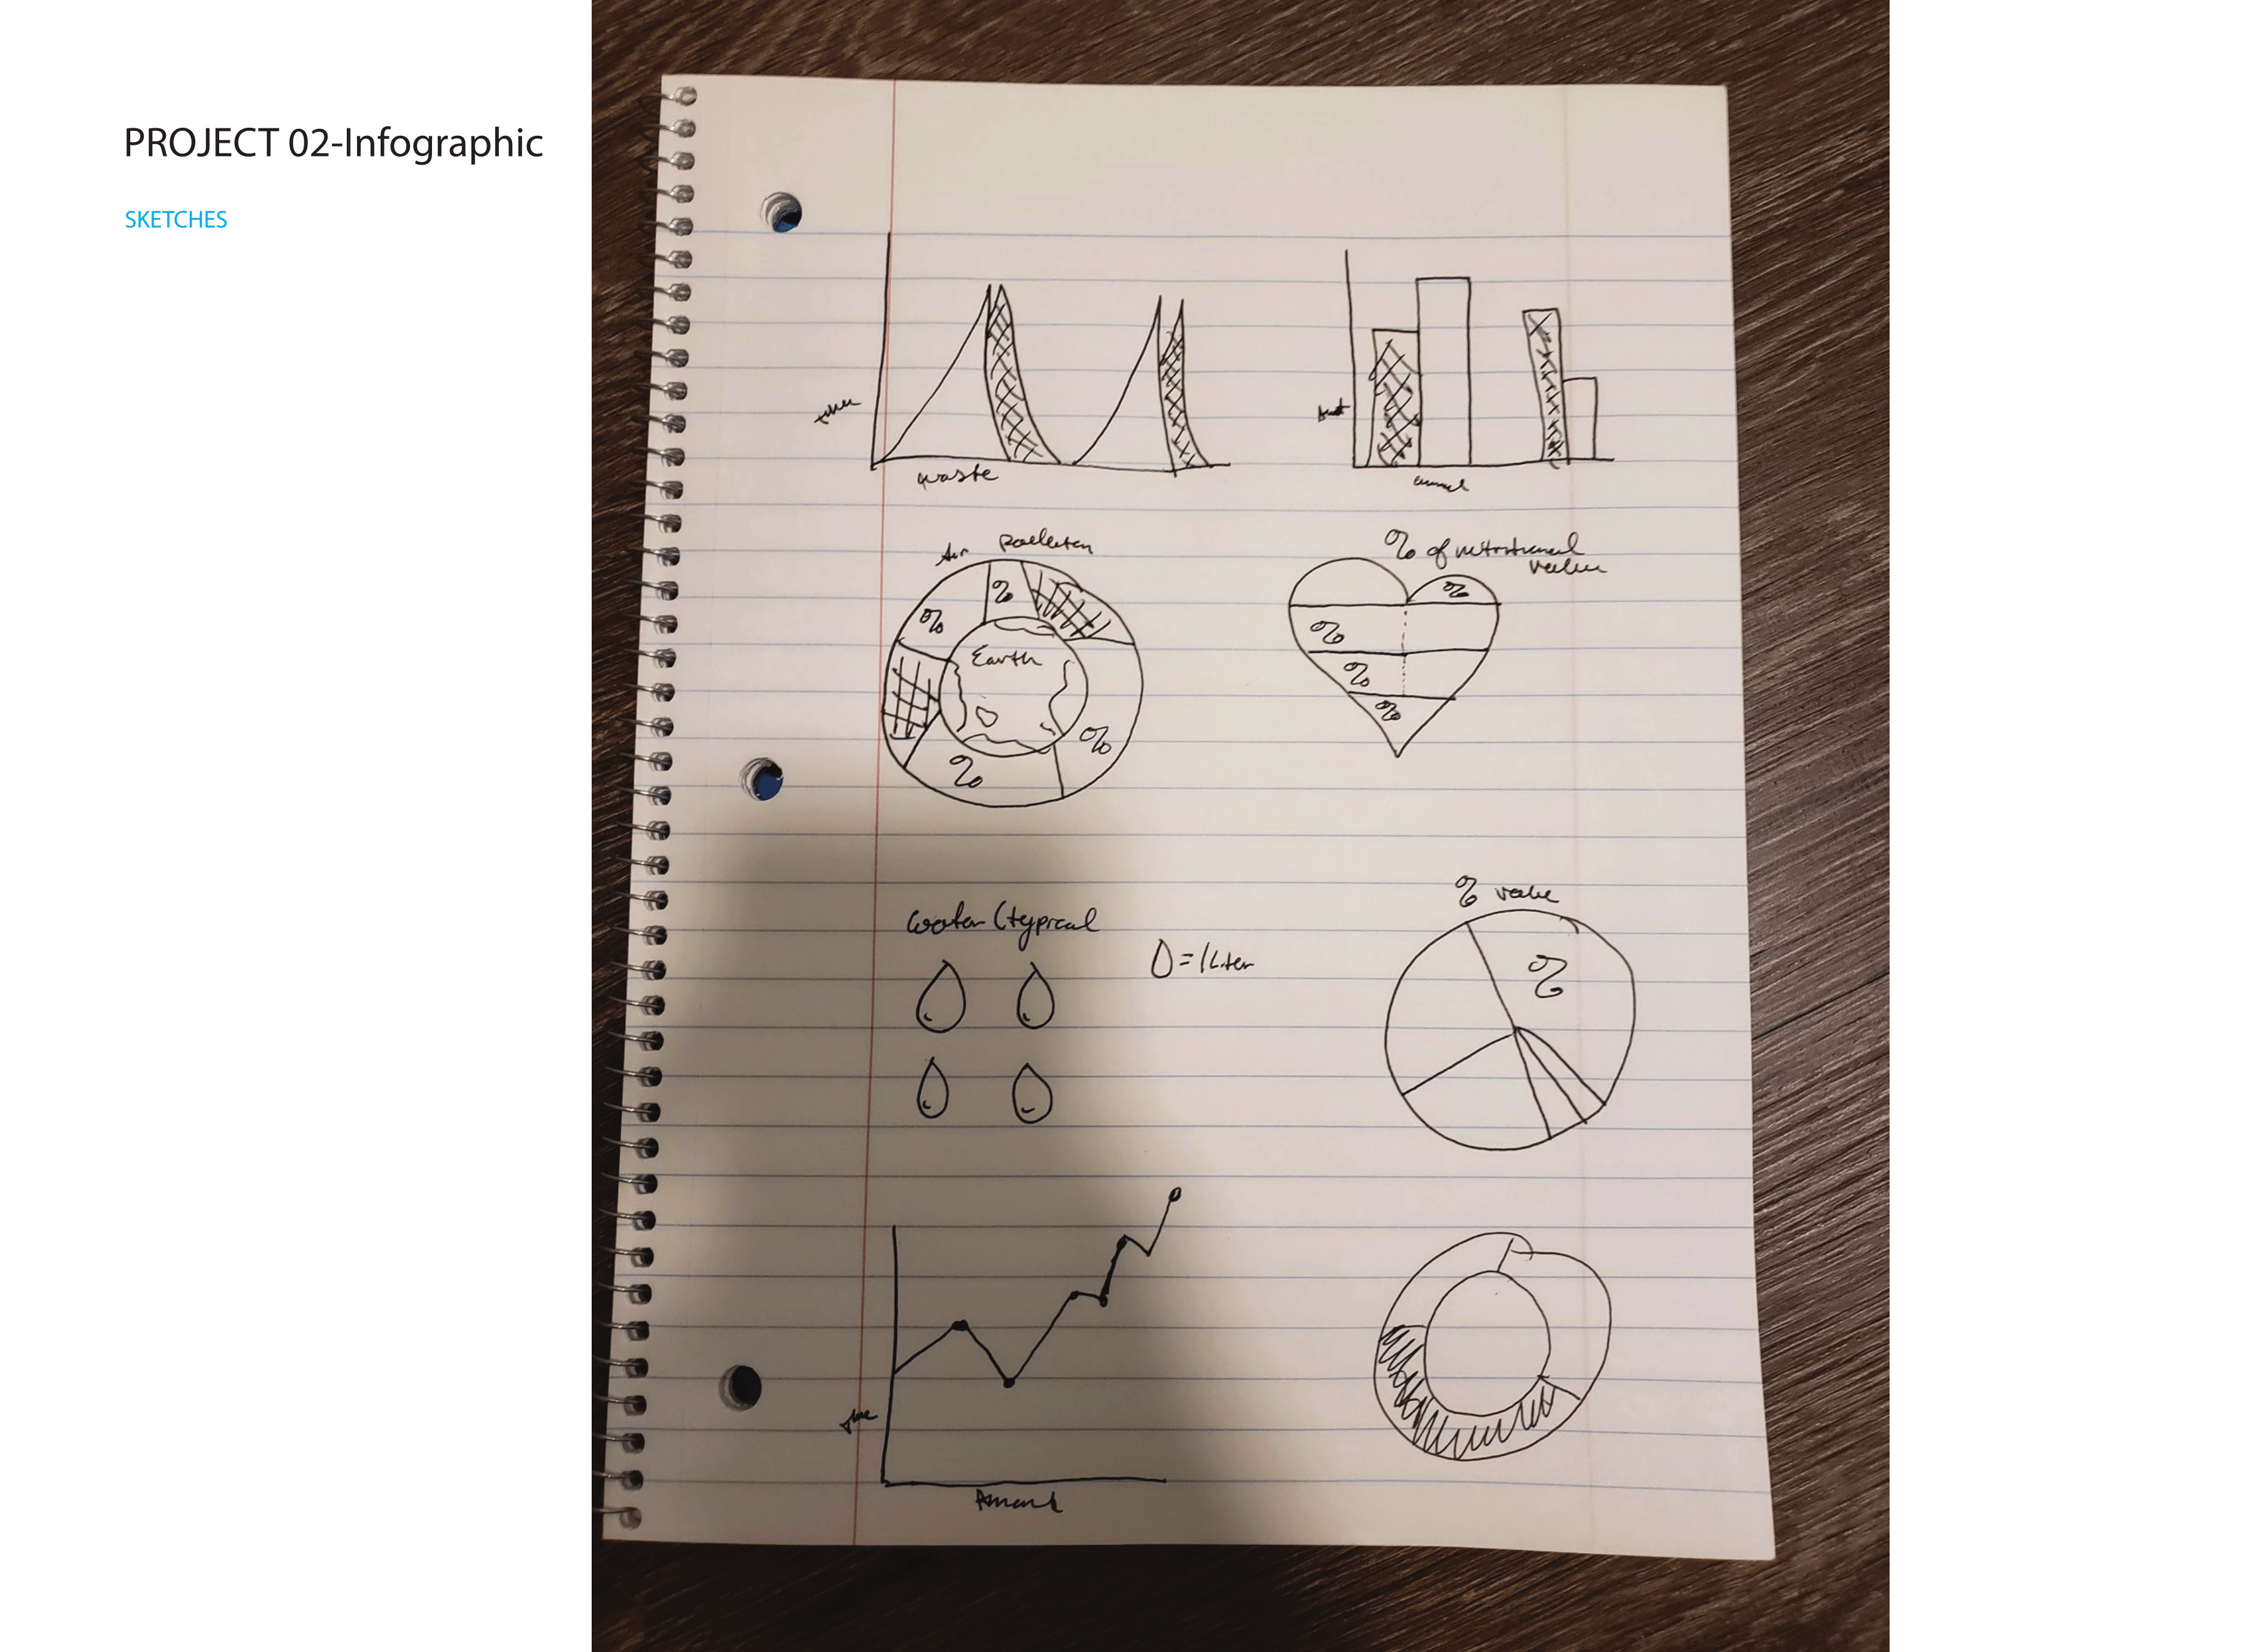 PROJECT 02-Infographic
SKETCHES
waste
Air Pollution
% of nutritional
value
%
%
%
Earth
%
%
%
%
%
Water (typical
= 1 Liter
% value
%
time
Amount